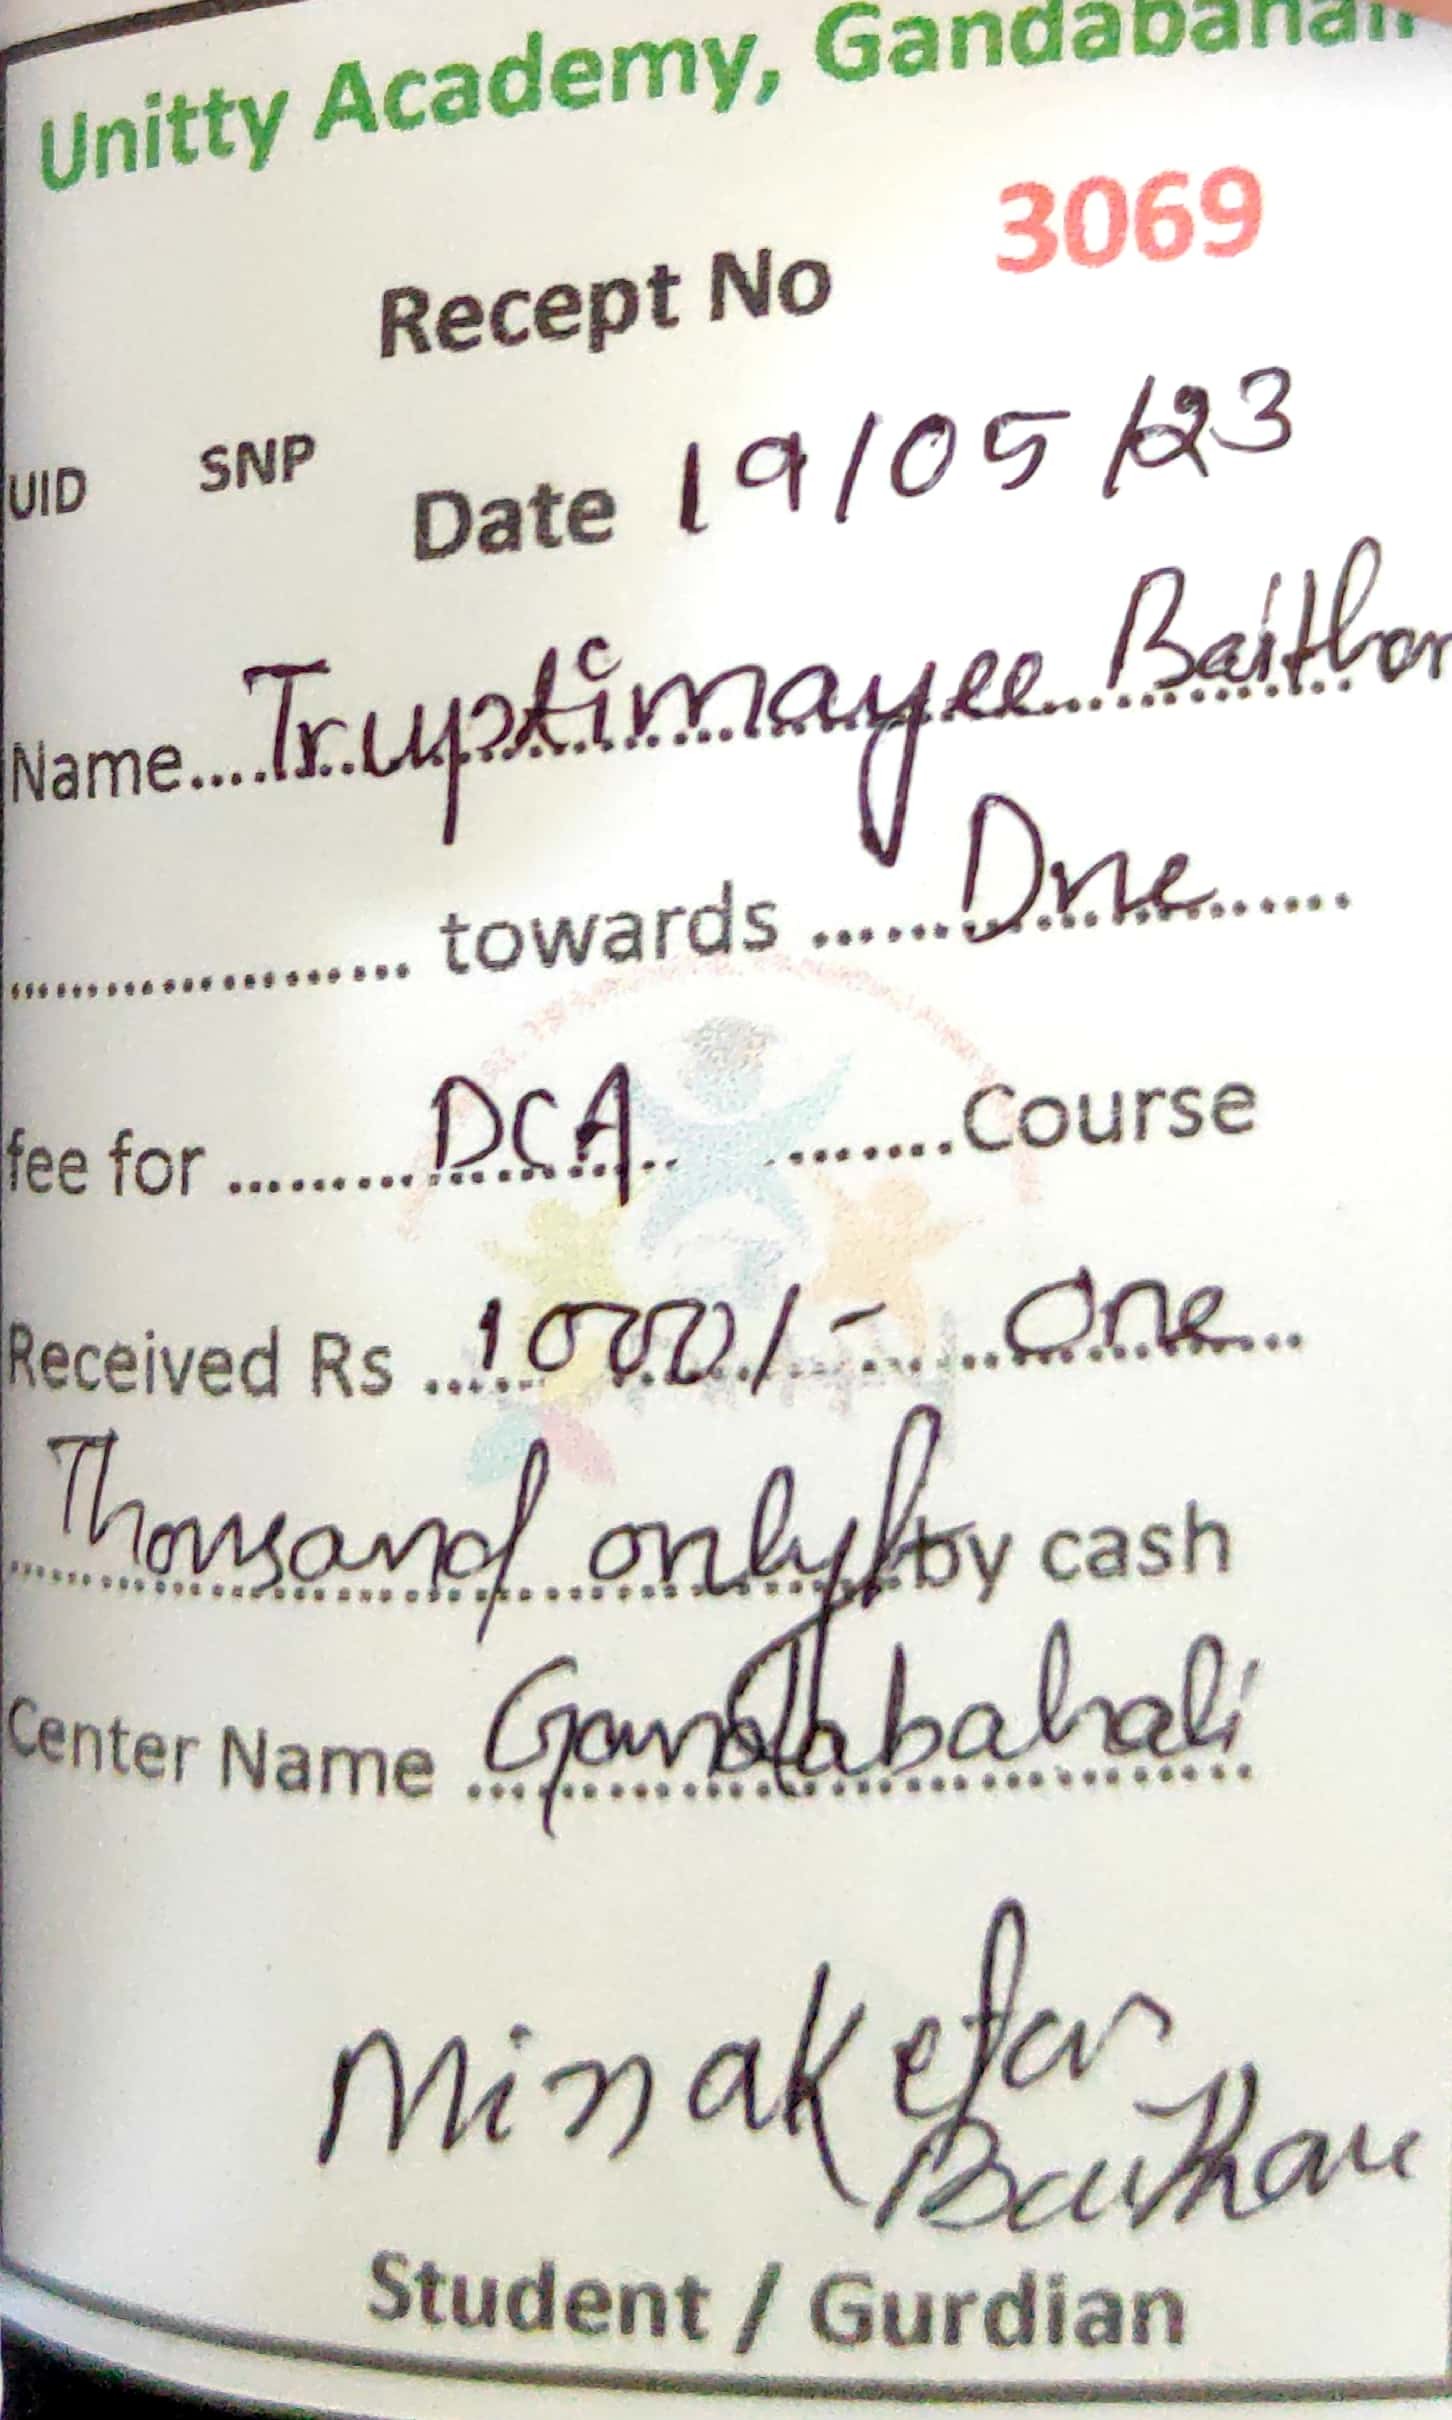 Unitty Academy, Gandabahali
Recept No 3069
UID SNP
Date 19/05/23
Name....Truptimayee Baithar
.................... towards ......Due......
fee for ..........DCA.. .......Course
Received Rs ....1000/- ......One...
...Thousand only....by cash
Center Name ...Gandabahali...
Minaketan
Baithar
Student / Gurdian